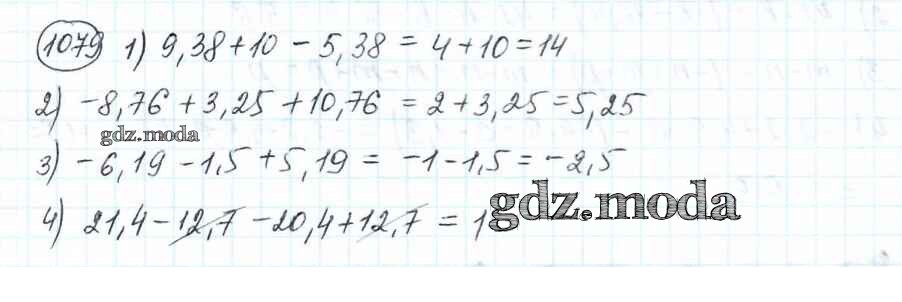 1079 1) 9,38 + 10 - 5,38 = 4 + 10 = 14
2) -8,76 + 3,25 + 10,76 = 2 + 3,25 = 5,25
gdz.moda
3) -6,19 - 1,5 + 5,19 = -1 - 1,5 = -2,5
4) 21,4 - 12,7 - 20,4 + 12,7 = 1
gdz.moda